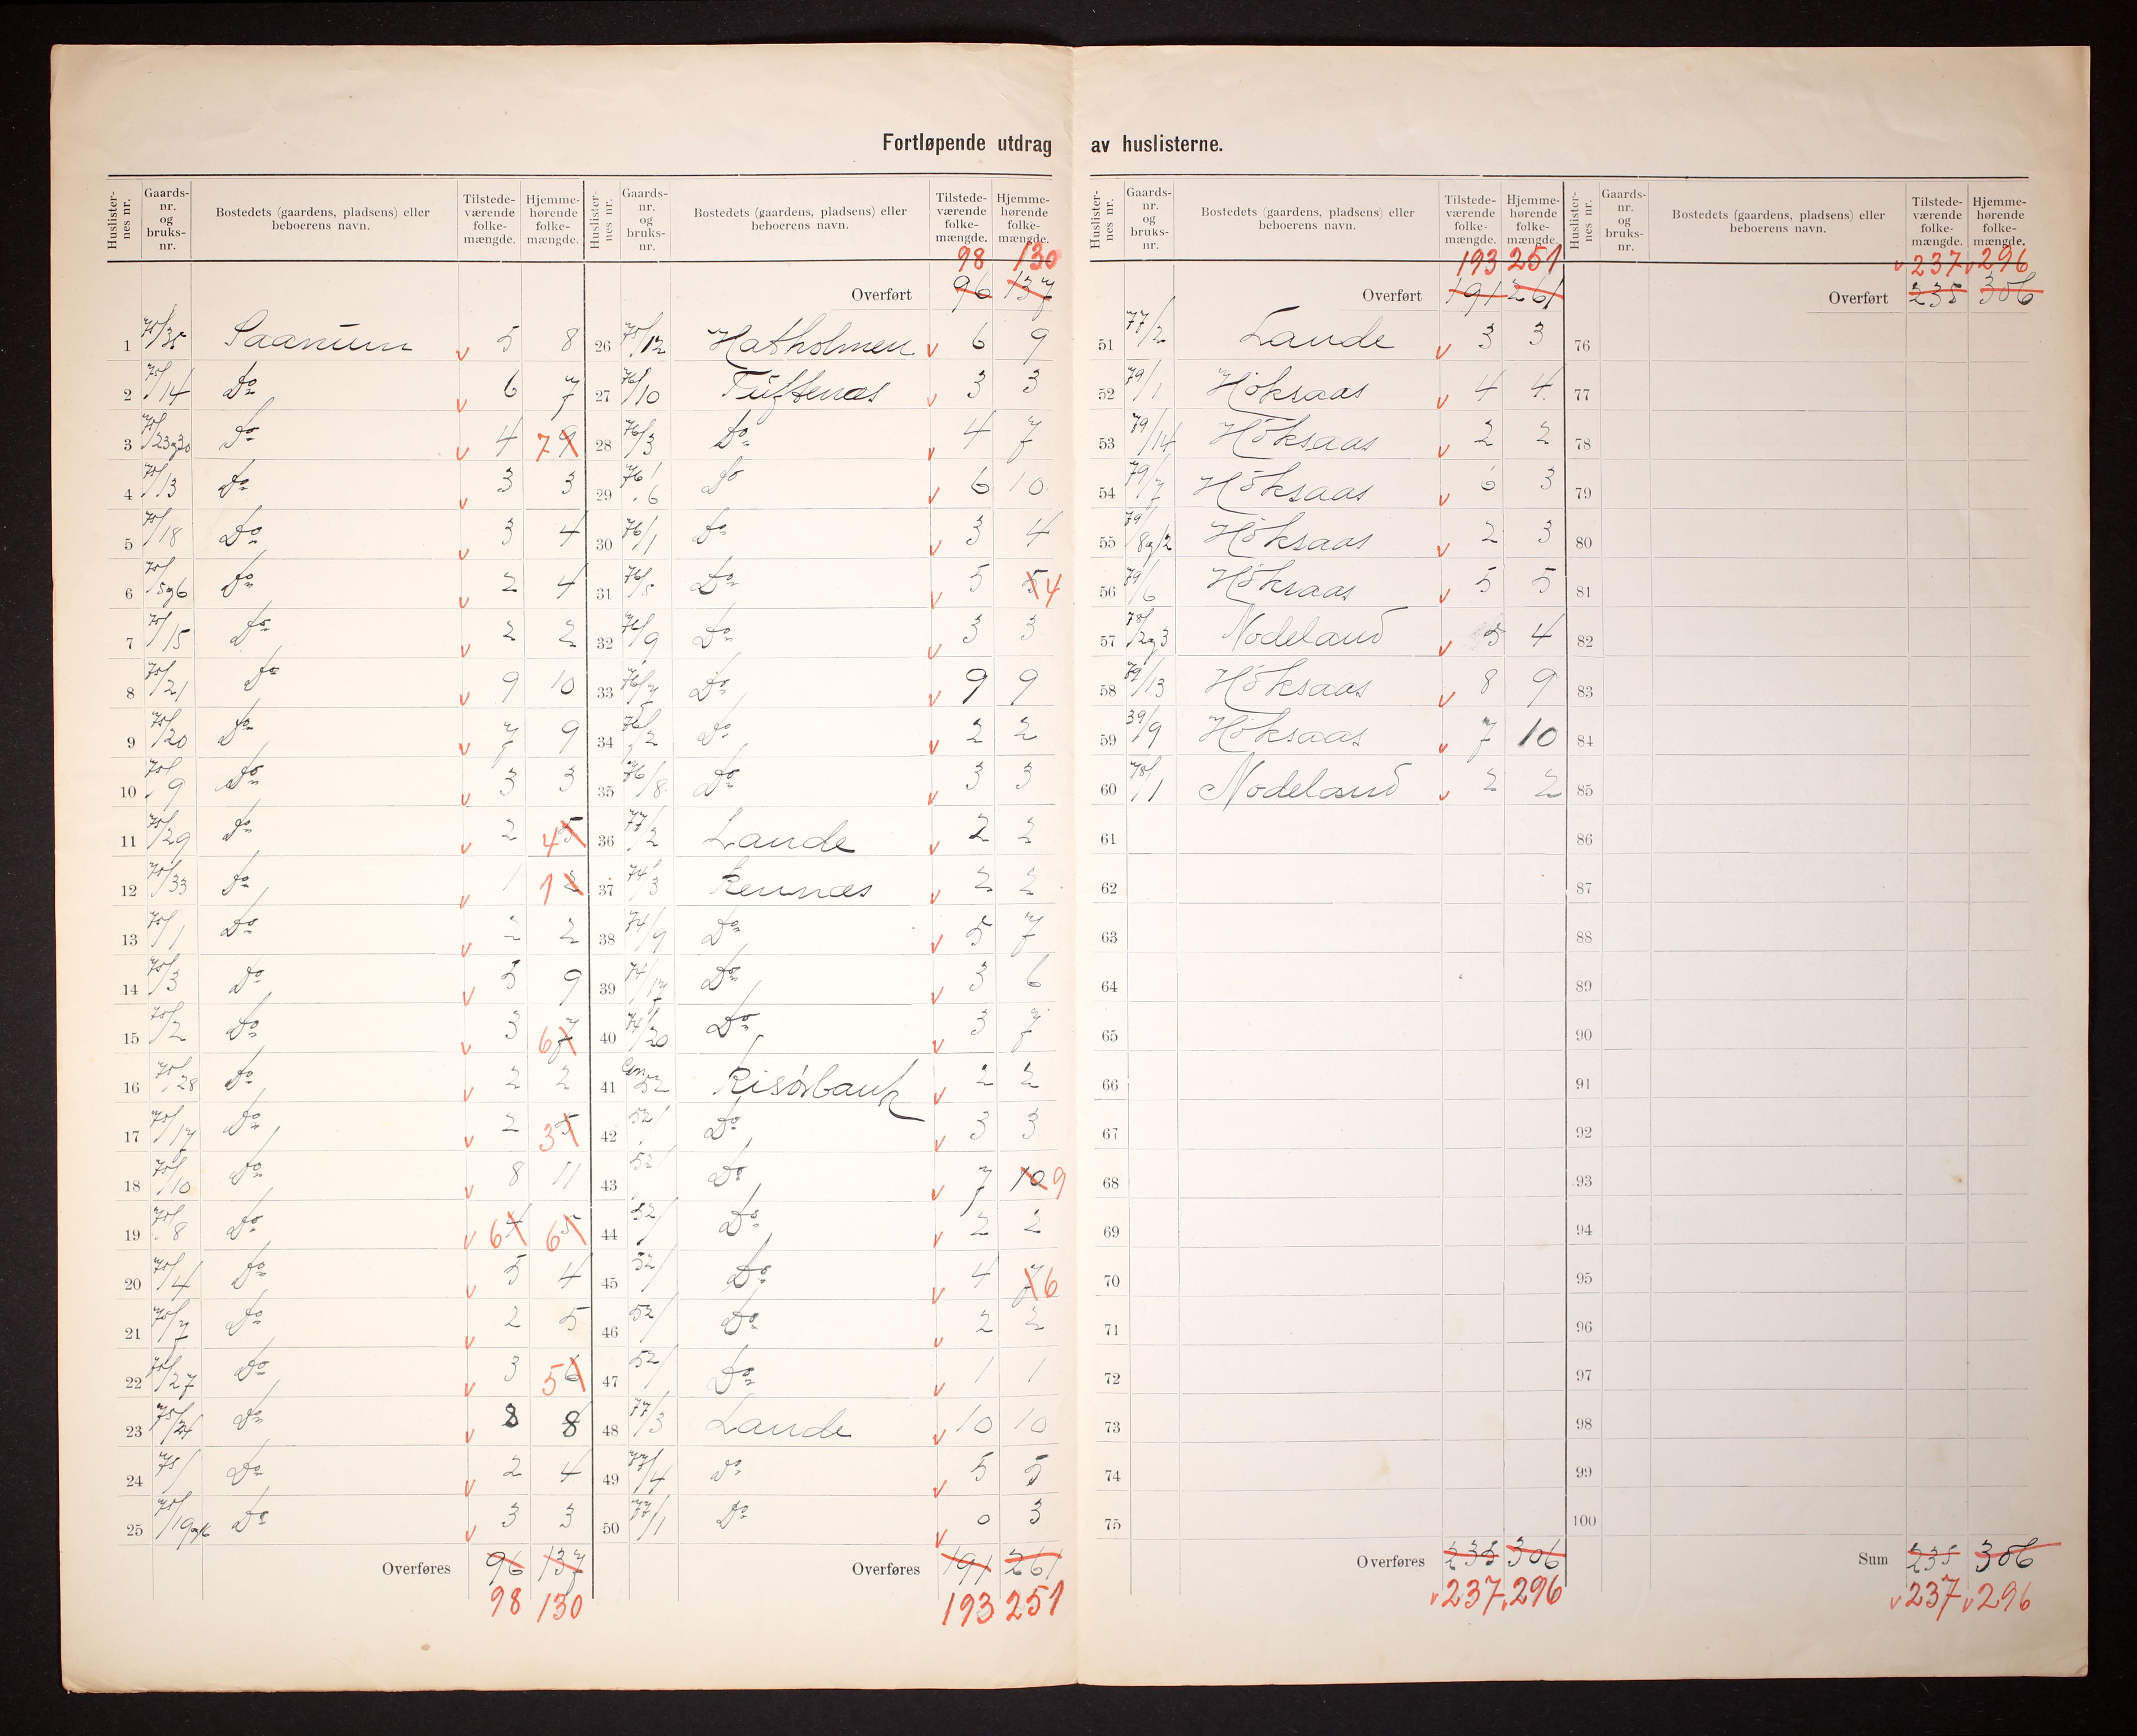 Fortløpende utdrag av huslisterne.
Huslisternes nr. | Gaards-nr. og bruks-nr. | Bostedets (gaardens, pladsens) eller beboerens navn. | Tilstedeværende folkemængde. | Hjemmehørende folkemængde.
1 75/35 Saanum 5 8
2 75/14 Do 6 7
3 75/23og30 Do 4 9 7
4 75/13 Do 3 3
5 75/18 Do 3 4
6 75/5og6 Do 2 4
7 75/15 Do 2 2
8 75/21 Do 9 10
9 75/20 Do 7 9
10 75/9 Do 3 3
11 75/29 Do 2 5 4
12 75/33 Do 1 2 1
13 75/1 Do 2 2
14 75/3 Do 5 9
15 75/2 Do 3 7 6
16 75/28 Do 2 2
17 75/17 Do 2 5 3
18 75/10 Do 8 11
19 75/8 Do 4 6 5 6
20 75/4 Do 5 4
21 75/7 Do 2 5
22 75/27 Do 3 6 5
23 75/24 Do 8 8
24 75/ Do 2 4
25 75/19 Do 3 3
Overføres 96 137
98 130
Huslisternes nr. | Gaards-nr. og bruks-nr. | Bostedets (gaardens, pladsens) eller beboerens navn. | Tilstedeværende folkemængde. | Hjemmehørende folkemængde.
98 130
Overført 96 137
26 75/12 Hatholmen 6 9
27 76/10 Tuftenæs 3 3
28 76/3 Do 4 7
29 76/6 Do 6 10
30 76/1 Do 3 4
31 76/5 Do 5 5 4
32 76/9 Do 3 3
33 76/7 Do 9 9
34 76/2 Do 2 2
35 76/8 Do 3 3
36 77/2 Lande 2 2
37 74/3 Rennæs 2 2
38 74/9 Do 5 7
39 74/17 Do 3 6
40 74/20 Do 3 7
41 52 Risörbank 2 2
42 52/ Do 3 3
43 52/ Do 7 10 9
44 52/ Do 2 2
45 52/ Do 4 7 6
46 52/ Do 2 2
47 52/ Do 1 1
48 77/3 Lande 10 10
49 77/4 Do 5 5
50 77/1 Do 0 3
Overføres 191 261
193 251
Huslisternes nr. | Gaards-nr. og bruks-nr. | Bostedets (gaardens, pladsens) eller beboerens navn. | Tilstedeværende folkemængde. | Hjemmehørende folkemængde.
193 251
Overført 191 261
51 77/2 Lande 3 3
52 79/1 Höksaas 4 4
53 79/14 Höksaas 2 2
54 79/7 Höksaas 6 3
55 79/8og12 Höksaas 2 3
56 79/6 Höksaas 5 5
57 78/2og3 Nodeland 5 4
58 79/13 Höksaas 8 9
59 39/9 Höksaas 7 10
60 78/1 Nodeland 2 2
61
62
63
64
65
66
67
68
69
70
71
72
73
74
75
Overføres 235 306
237 296
Huslisternes nr. | Gaards-nr. og bruks-nr. | Bostedets (gaardens, pladsens) eller beboerens navn. | Tilstedeværende folkemængde. | Hjemmehørende folkemængde.
237 296
Overført 235 306
76
77
78
79
80
81
82
83
84
85
86
87
88
89
90
91
92
93
94
95
96
97
98
99
100
Sum 235 306
237 296